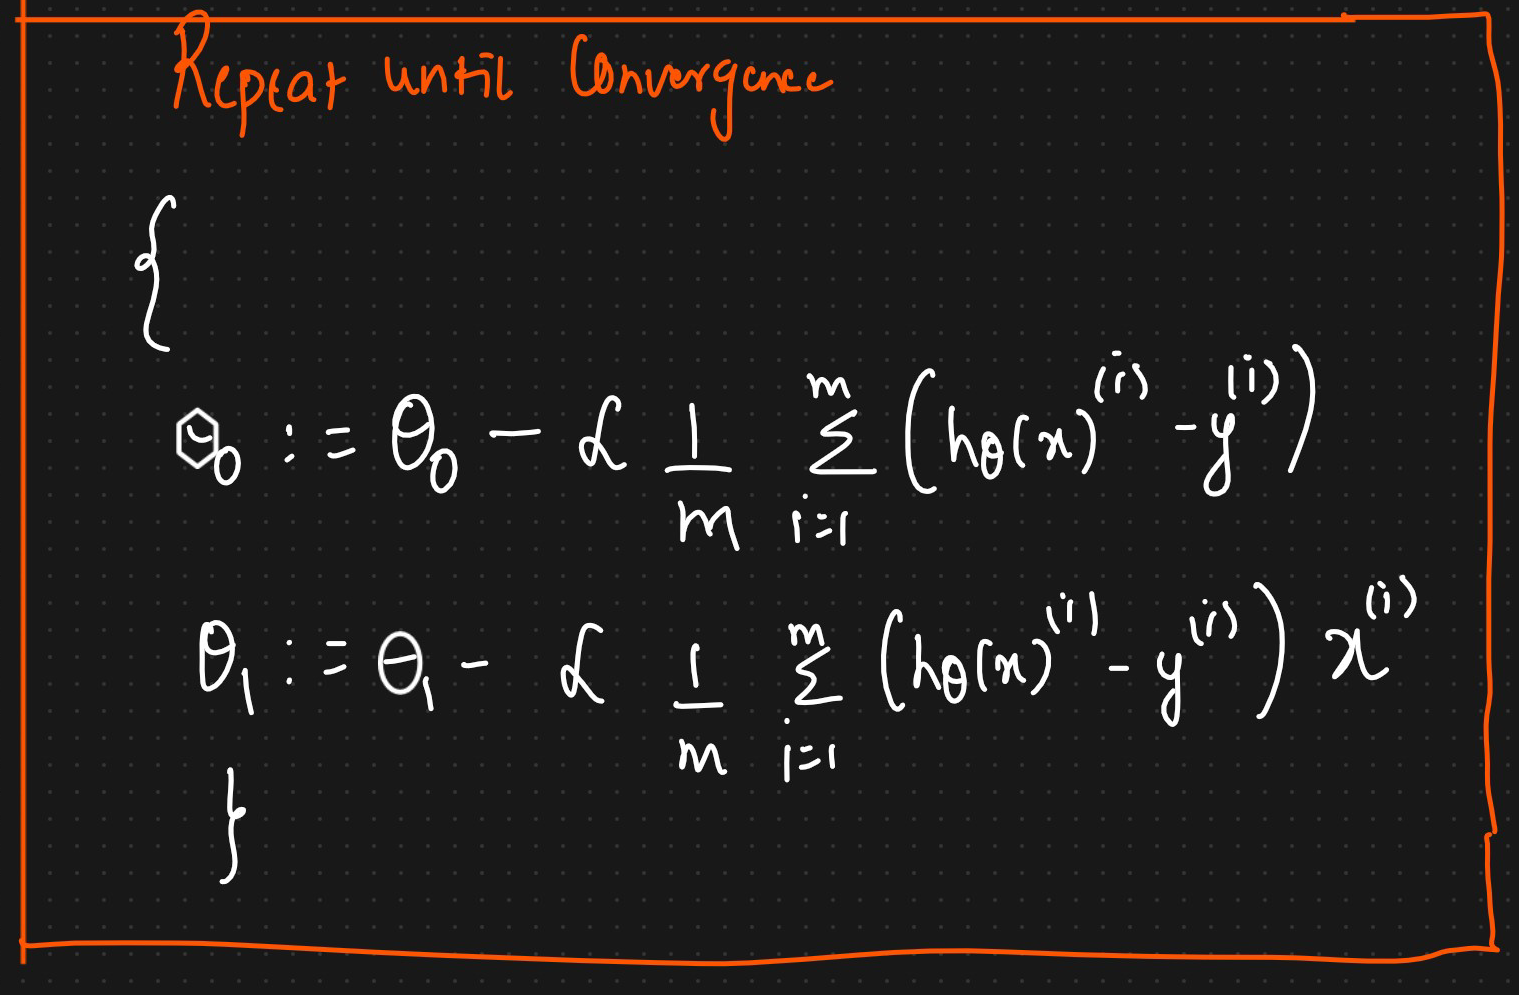 Repeat until Convergence
{
θ₀ := θ₀ - α 1/m Σ_{i=1}^{m} (hθ(x)^{(i)} - y^{(i)})
θ₁ := θ₁ - α 1/m Σ_{i=1}^{m} (hθ(x)^{(i)} - y^{(i)}) x^{(i)}
}